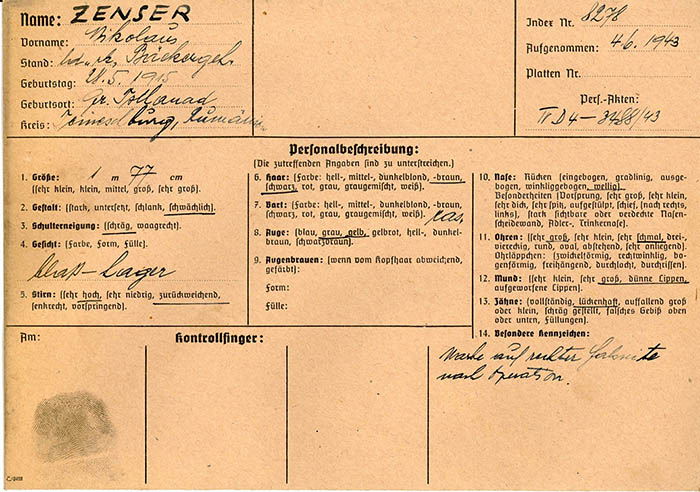 Name: ZENSER
Vorname: Nikolaus
Stand: led. rk. Bäckergeh.
Geburtstag: 28.5.1915
Geburtsort: Gr.
Kreis:
Index Nr. 8278
Aufgenommen: 4/6. 1943
Platten Nr.
Pers.-Akten:
IV D 4 — 3488/43
Personalbeschreibung:
(Die zutreffenden Angaben sind zu unterstreichen.)
1. Größe: 1 m 77 cm
(sehr klein, klein, mittel, groß, sehr groß).
2. Gestalt: (stark, untersetzt, schlank, schwächlich).
3. Schulterneigung: (schräg, waagrecht).
4. Gesicht: (Farbe, Form, Fülle).
blaß – hager
5. Stirn: (sehr hoch, sehr niedrig, zurückweichend,
senkrecht, vorspringend).
6. Haar: (Farbe: hell-, mittel-, dunkelblond, -braun,
schwarz, rot, grau, graugemischt, weiß).
7. Bart: (Farbe: hell-, mittel-, dunkelblond, -braun,
schwarz, rot, grau, graugemischt, weiß). ras
8. Auge: (blau, grau, gelb, gelbrot, hell-, dunkel-
braun, schwarzbraun).
9. Augenbrauen: (wenn vom Kopfhaar abweichend,
gefärbt):
Form:
Fülle:
10. Nase: Rücken (eingebogen, gradlinig, ausge-
bogen, winkliggebogen, wellig).
Besonderheiten (Vorsprung sehr groß, sehr klein,
sehr dick, sehr spitz, aufgestülpt, schief, [nach rechts,
links], stark sichtbare oder verdeckte Nasen-
scheidewand, Adler-, Trinkernase).
11. Ohren: (sehr groß, sehr klein, sehr schmal, drei-
eckig, rund, oval, abstehend, sehr anliegend).
Ohrläppchen: (zwickelförmig, rechtwinklig, bo-
genförmig, freihängend, durchlocht, durchrissen).
12. Mund: (sehr klein, sehr groß, dünne Lippen,
aufgeworfene Lippen).
13. Zähne: (vollständig, lückenhaft, auffallend groß
oder klein, schräg gestellt, falsches Gebiß oben
oder unten, Füllungen).
14. Besondere Kennzeichen:
Narbe auf rechter
nach Operation.
Am:
Kontrollfinger: